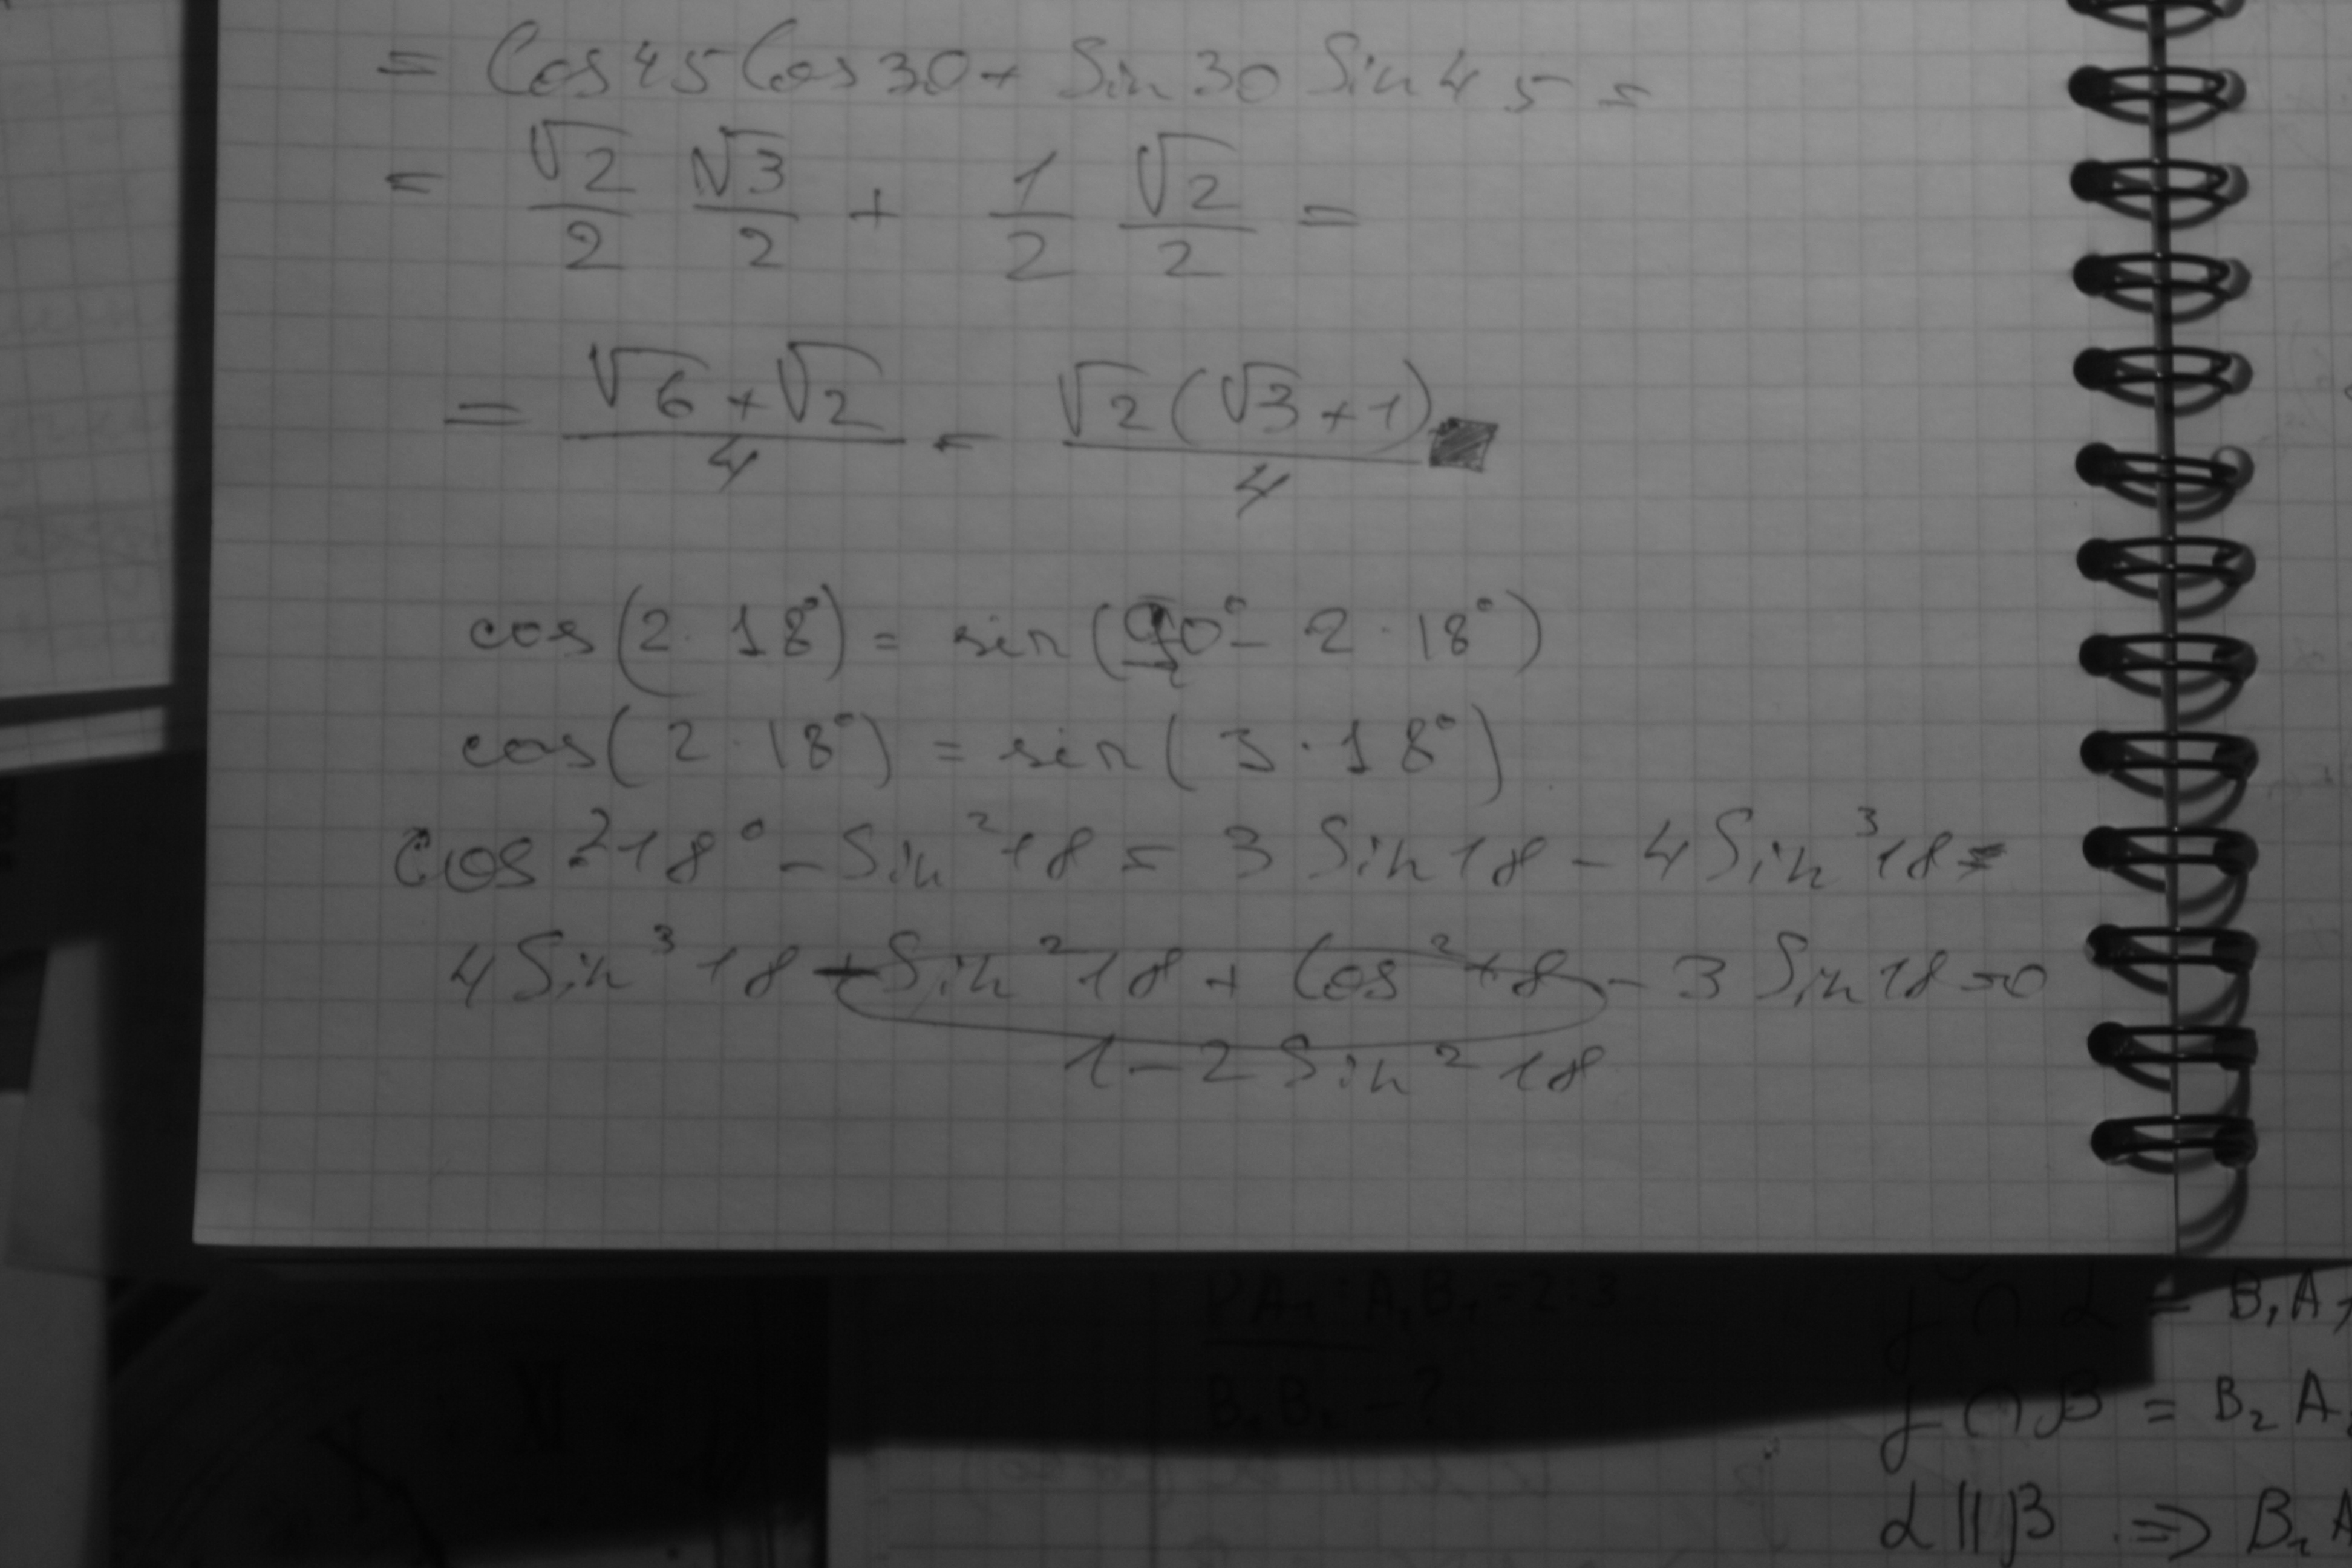 = Cos45Cos30+ Sin30 Sin45 =
= √2/2 √3/2 + 1/2 √2/2 =
= (√6+√2)/4 = √2(√3+1)/4
cos(2·18°) = sin(90°- 2·18°)
cos(2·18°) = sin(3·18°)
Cos²18° - Sin²18 = 3 Sin18 - 4Sin³18
4Sin³18 - Sin²18 + Cos²18 - 3 Sin18=0
1-2 Sin²18
PA₁:A₁B₁=2:3
B₂B₁-?
γ∩α = B₁A₁
γ∩β = B₂A
α||β ⇒ B₁A